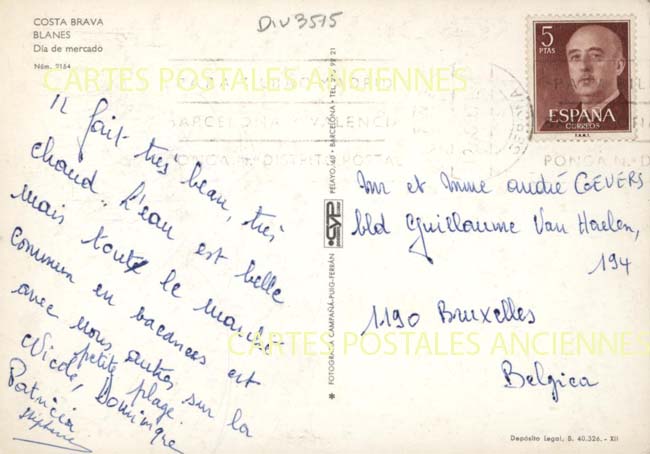 COSTA BRAVA
BLANES
Día de mercado
Núm. 9164
Div 3575
CARTES POSTALES ANCIENNES
Il fait très beau, très
chaud. L'eau est belle
mais tout le marché
commun en vacances est
avec nous autres sur la
petite plage.
Nicole, Dominique
Patricia
Stéphane
FOTOGRAFÍA CAMPAÑÁ-PUIG-FERRÁN
CYP
PELAYO, BARCELONA - TEL.
BARCELONA VALENCIA
PONGA N.º DISTRITO POSTAL
PONGA N.º D
5
PTAS
ESPAÑA
CORREOS
F.N.M.T.
Mr et Mme André GEVERS
bld Guillaume Van Haelen,
194
1190 Bruxelles
CARTES POSTALES ANCIENNES
Belgica
Depósito Legal, B. 40.326. - XII